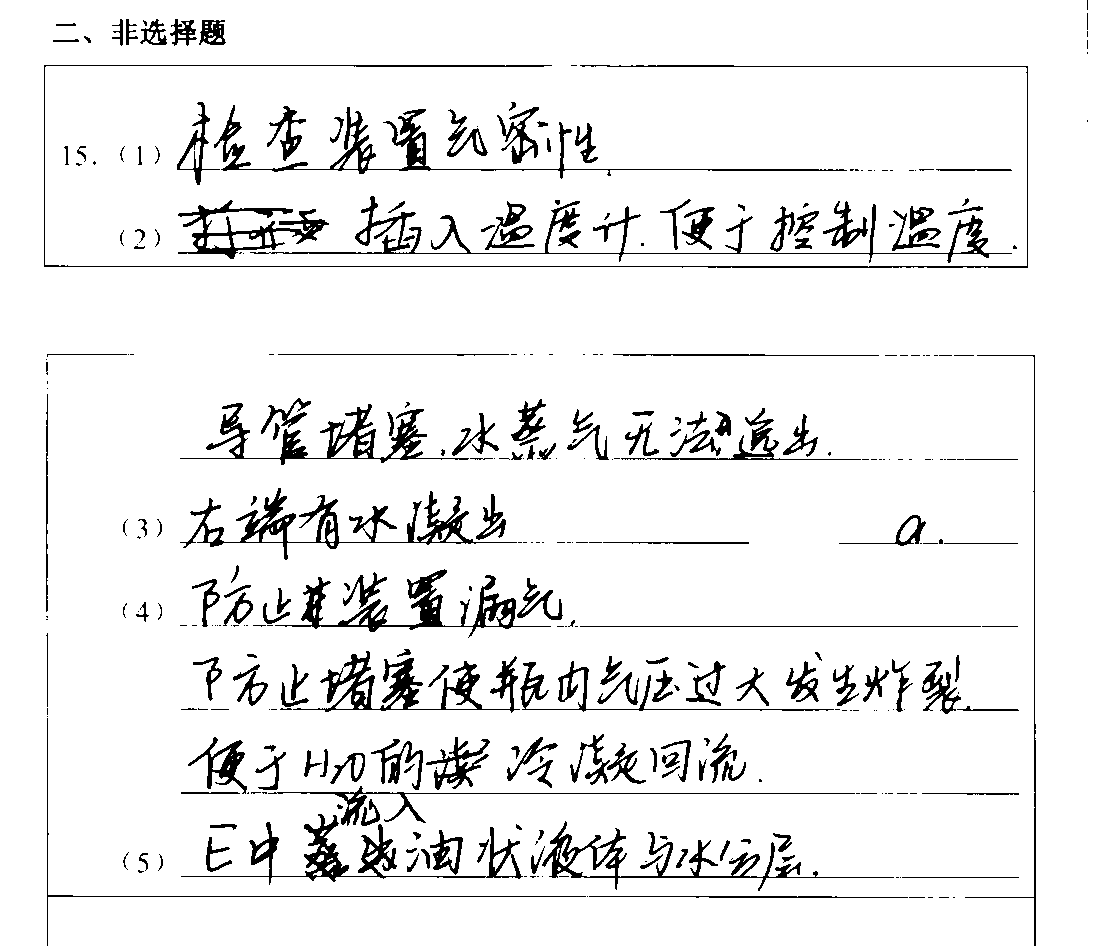 二、非选择题
15.（1）检查装置气密性.
（2）插入温度计.便于控制温度.
导管堵塞.水蒸气无法逸出.
（3）右端有水凝出 a.
（4）防止装置漏气.
防止堵塞使瓶内气压过大发生炸裂.
便于H2O的冷凝回流.
流入
（5）E中油状液体与水分层.